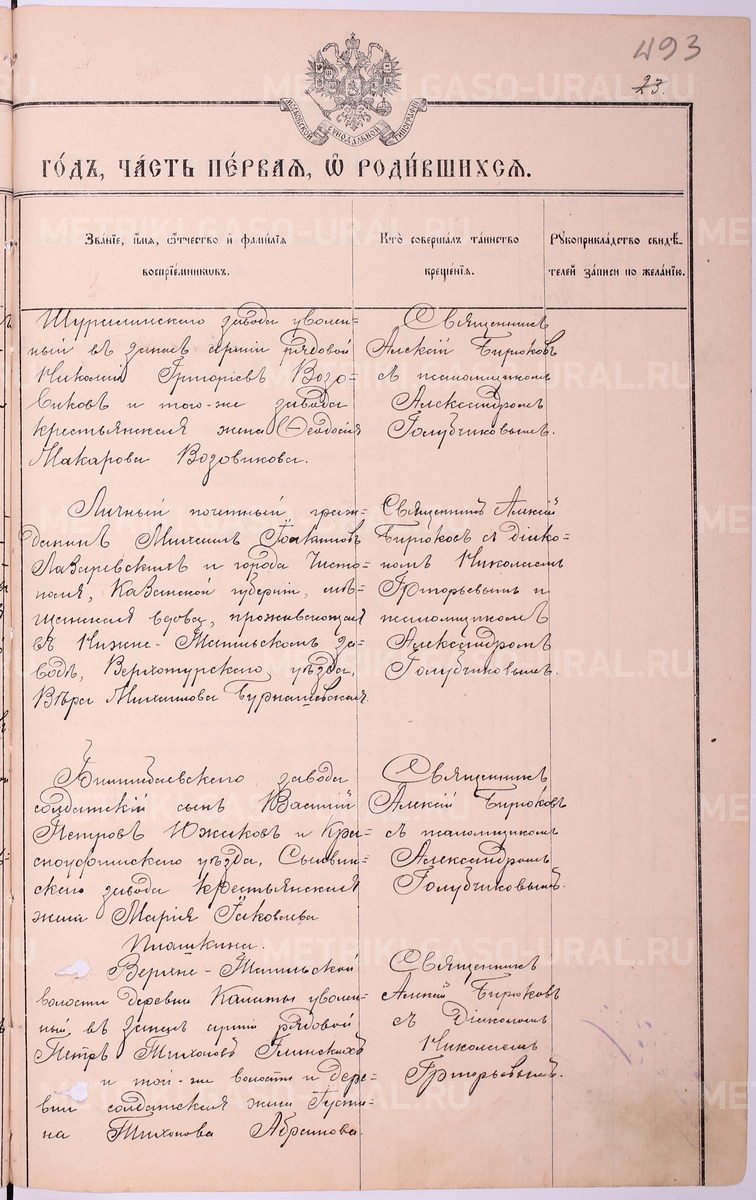 493
23.
МОСКОВСКОЙ СѴНОДАЛЬНОЙ ТИПОГРАФІИ
ГО́ДЪ, ЧА́СТЬ ПЕ́РВАЯ, Ѡ҆ РОДИ́ВШИХСЯ.
Зва́нїе, и҆́мя, ѻ҆́тчество и҆ фами́лїя
воспрїе́мникѡвъ.
Кто̀ соверша́лъ та́инство
креще́нїя.
Рꙋкоприкла́дство свидѣ́-
телей за́писи по жела́нїю.
Шуралинскаго завода уволен-
ный въ запасъ арміи рядовой
Николай Григоріевъ Возо-
виковъ и того-же завода
крестьянская жена Ѳеодосія
Макарова Возовикова.
Священникъ
Алексій Бирюковъ
съ псаломщикомъ
Александромъ
Голубчиковымъ.
Личный почетный граж-
данинъ Михаилъ Іоакимовъ
Лазаревскихъ и города Чисто-
поля, Казанской губерніи, мѣ-
щанская вдова, проживающая
въ Нижне-Тагильскомъ за-
водѣ, Верхотурскаго уѣзда,
Вѣра Михаилова Бурнашевская.
Священникъ Алексій
Бирюковъ съ діако-
номъ Николаемъ
Григорьевымъ и
псаломщикомъ
Александромъ
Голубчиковымъ.
Билимбаевскаго завода
солдатскій сынъ Василій
Петровъ Южаковъ и Кра-
сноуфимскаго уѣзда, Сылвин-
скаго завода крестьянская
жена Марія Іаковлева
Плашкина.
Священникъ
Алексій Бирюковъ
съ псаломщикомъ
Александромъ
Голубчиковымъ.
Верхне-Тагильской
волости деревни Калаты уволен-
ный въ запасъ арміи рядовой
Петръ Тихоновъ Глинскихъ
и той-же волости и дере-
вни солдатская жена Густи-
на Тихонова Абрамова.
Священникъ
Алексій Бирюковъ
съ Діакономъ
Николаемъ
Григорьевымъ.
METRIKI.GASO-URAL.RU